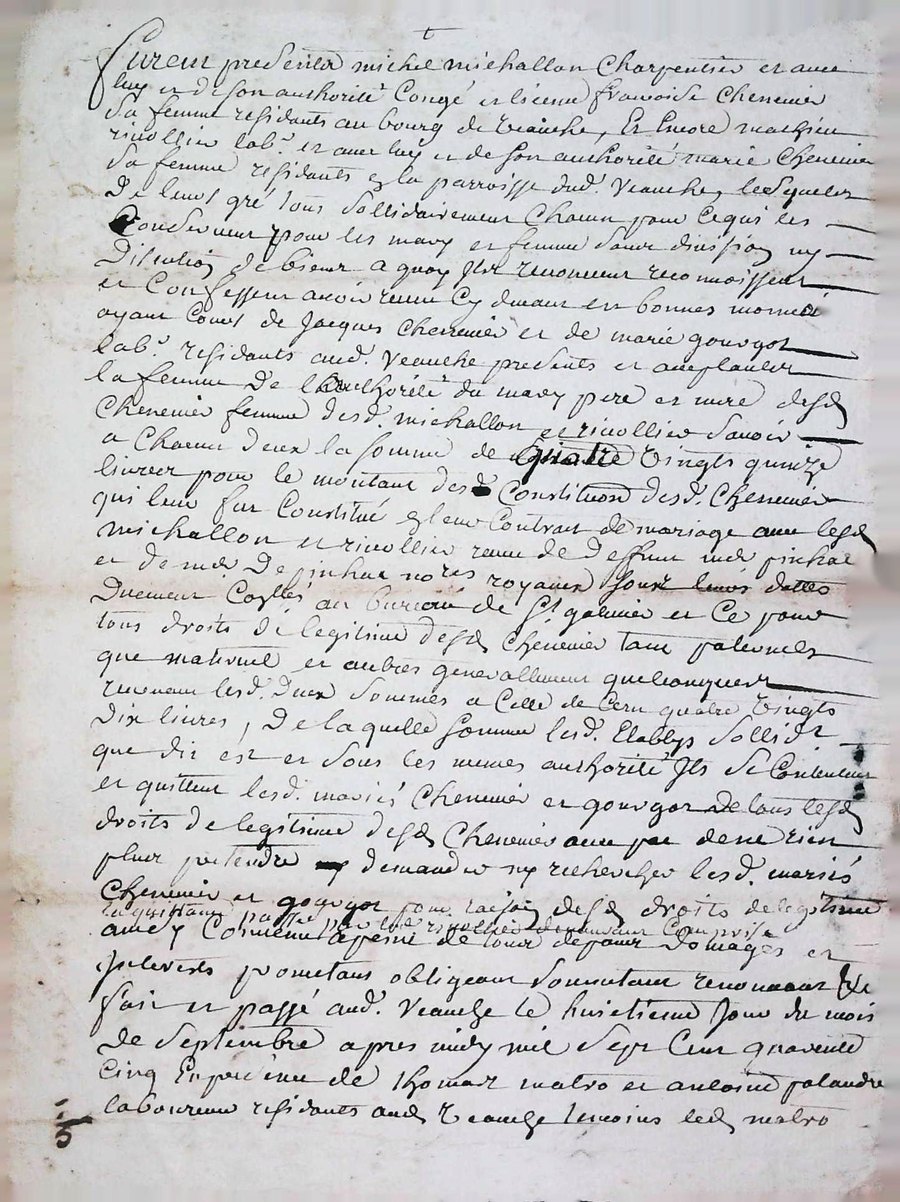 Furent presents michel michallon Charpentier et avec
luy et de son authorité Congé et licence francoise Chenevier
sa femme residants au bourg de veauche, Et Encore mathieu
rivollier lab.r et avec luy et de son authorité marie Chenevier
sa femme residants en la parroisse dud. veauche, lesquels
de leurs gré tous sollidairement Chacun pour ce qui les
Concernent pour les mary et femme sans division ny
Discution de biens a quoy Ils renoncent reconnoissent
et Confessent avoir receu Cy devant en bonnes monoié
ayant Cours de Jacques Chenevier et de marie gouygot
lab.r residants aud. veauche presents et acceptants
la femme de l'authorité du mary pere et mere desd
Chenevier femme desd. michallon et rivollier savoir
a Chacun deux la somme de quatre vingts quinze
livres pour le montant des Constitution desd. Chenevier
qui leur fut Constitué en leur Contrat de mariage avec lesd
michallon et rivollier receu de deffunt me pinhac
et de me De pinhac nores royaux sous leurs dattes
Duement Coñllés au bureau de St galmier et Ce pour
tous droits de legitime desd Chenevier tant paternels
que maternel et autres generallement quelconques
revenant lesd. deux sommes a Celle de Cent quatre vingts
dix livres, de laquelle somme lesd. Etablys sollidt
que dit est et sous les memes authorité Ils se Contentent
et quittent lesd. mariés Chenevier et gouygot de tous lesd
droits de legitime desd Chenevier avec pac de ne rien
plus pretendre ny demander ny rechercher lesd. mariés
Chenevier et gouygot pour raison desd droits de legitime
la quittance passée par led. rivollier Comprise
a peine de tous depans Domages et
Interests prometans obligeant soumetant renonceant &c
fait et passé aud. veauche le huitieme Jour du mois
de septembre apres midy mil sept Cent quarante
cinq En presence de thomas matro et antoine palandre
laboureur residants aud veauche temoins led matro